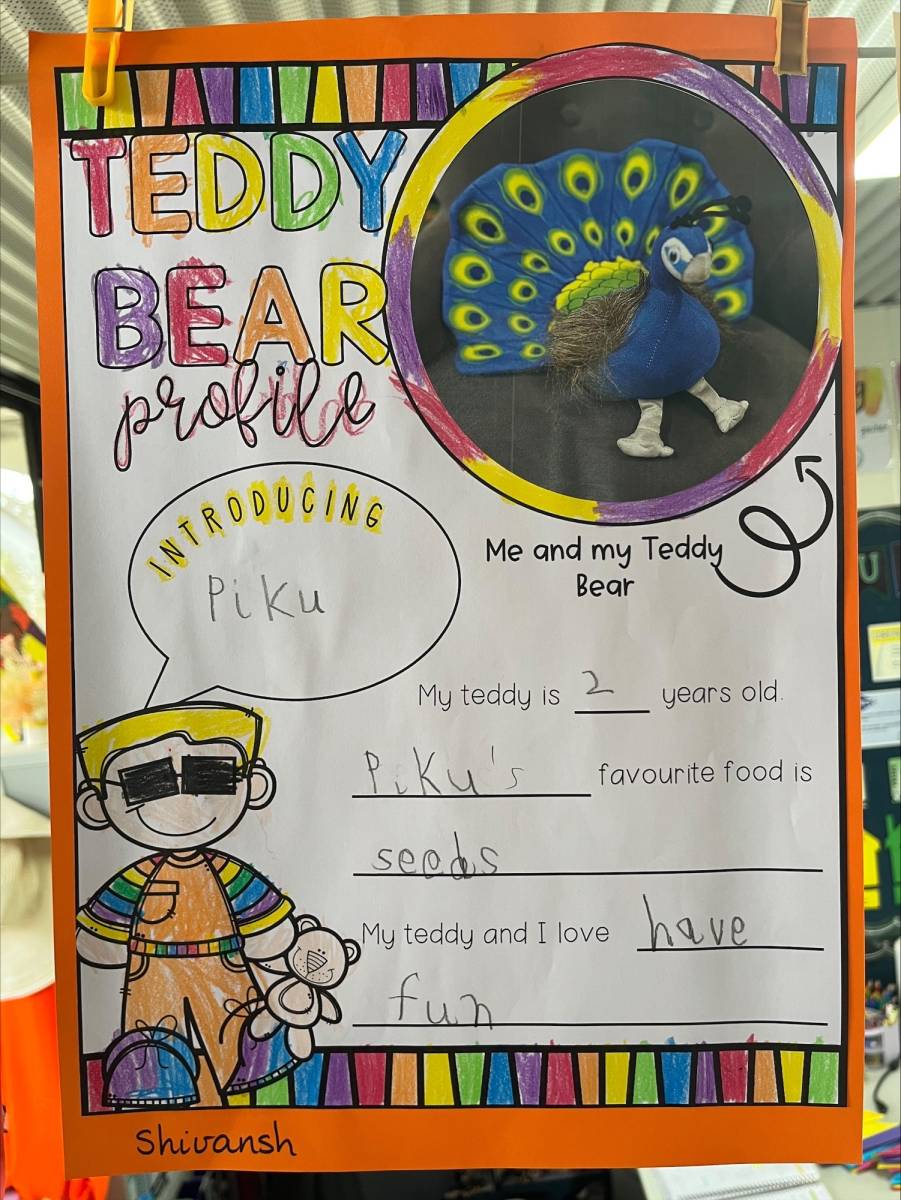 TEDDY
BEAR
profile
INTRODUCING
Piku
Me and my Teddy
Bear
My teddy is 2 years old.
Piku's favourite food is
seeds
My teddy and I love have
fun
Shivansh